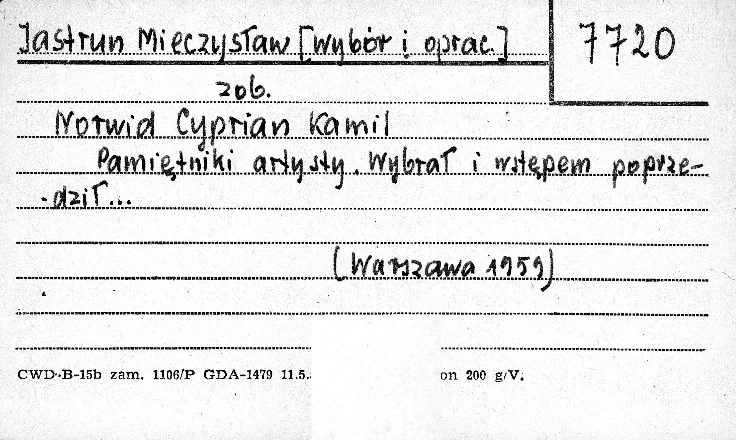 Jastrun Mieczysław [wybór i oprac.] 7720
zob.
Norwid Cyprian Kamil
Pamiętniki artysty. Wybrał i wstępem poprze-
-dził...
(Warszawa 1959)
CWD-B-15b zam. 1106/P GDA-1479 11.5. on 200 g/V.